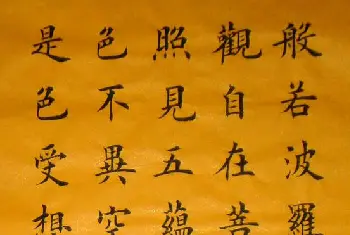 般若波羅
觀自在菩
照見五蘊
色不異空
是色受想